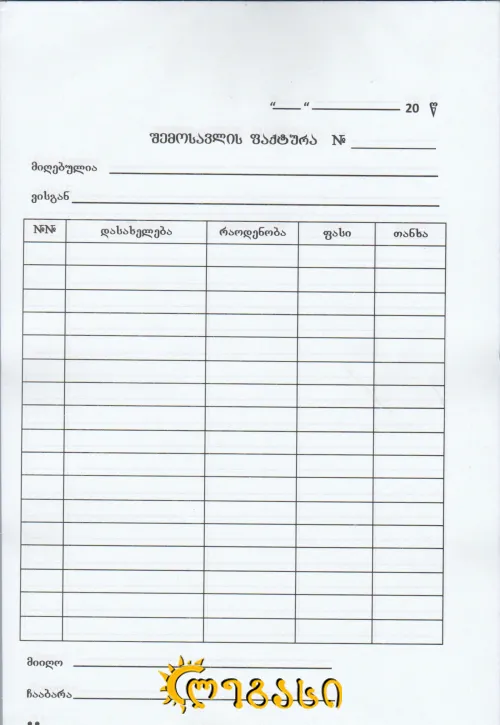 “___ “ ____________ 20 წ
შემოსავლის ფაქტურა № __________
მიღებულია ______________________________
ვისგან ______________________________
№№ დასახელება რაოდენობა ფასი თანხა
მიიღო ______________________
ჩააბარა ______________________
ოეგასი